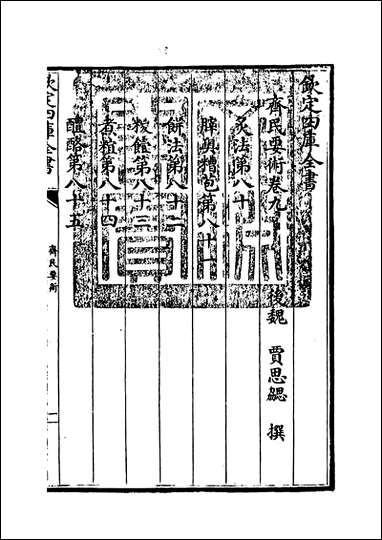 欽定四庫全書
齊民要術卷九
後魏 賈思勰 撰
炙法第八十
奧糟包第八十一
餅法第八十二
第八十三
煮第八十四
醴酪第八十五
欽定四庫全書
齊民要術
一